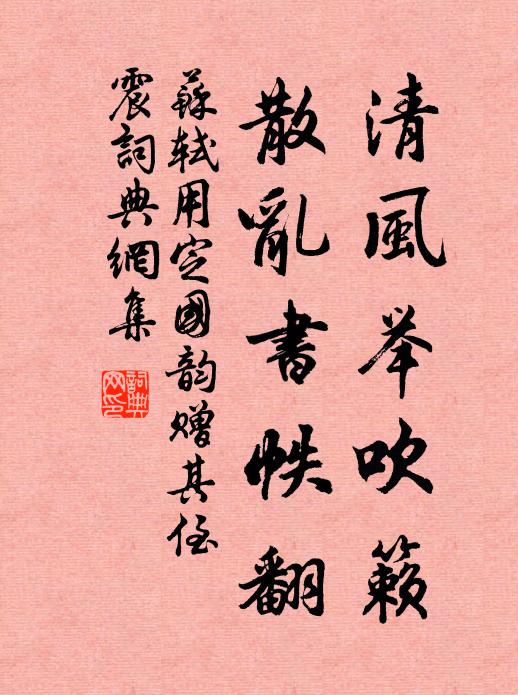 清風举吹籟
散亂書帙翻
蘇軾用定國韵赠其侄
震詞典網集
詞典网印